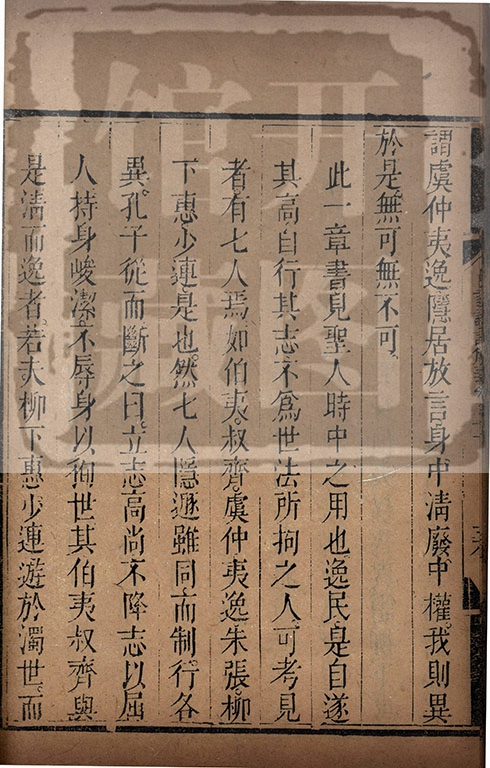 謂虞仲夷逸隱居放言身中淸廢中權我則異
於是無可無不可
此一章書見聖人時中之用也逸民是自遂
其高自行其志不爲世法所拘之人可考見
者有七人焉如伯夷叔齊虞仲夷逸朱張柳
下惠少連是也然七人隱遯雖同而制行各
異孔子從而斷之曰立志高尚不降志以屈
人持身峻潔不辱身以徇世其伯夷叔齊與
是淸而逸者若夫柳下惠少連遊於濁世而